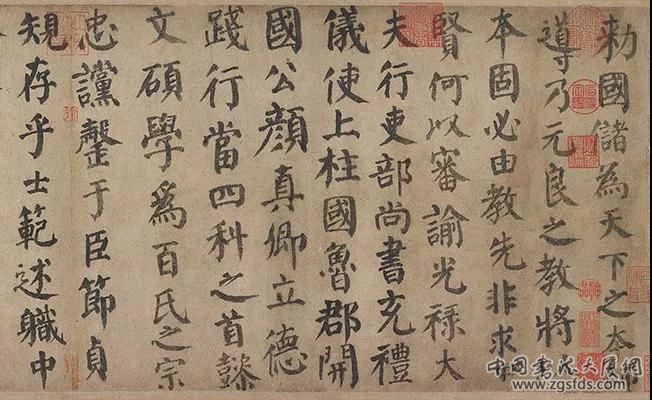 勅國儲為天下之本師
導乃元良之教將
本固必由教先非求
賢何以審諭光祿大
夫行吏部尚書充禮
儀使上柱國魯郡開
國公顏真卿立德
踐行當四科之首懿
文碩學為百氏之宗
忠讜罄于臣節貞
規存乎士範述職中
中国书法大展网
www.zgsfds.com